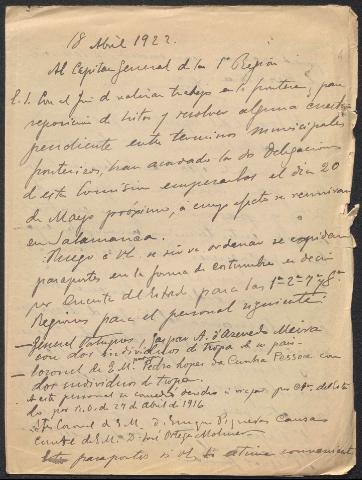 18 Abril 1922.
Al Capitan General de la 1ª Región
E. S. Con el fin de realizar trabajos en la frontera, para
reposición de hitos y resolver alguna cuestión
pendiente entre terminos municipales
fronterizos, han acordado las dos Delegaciones
de esta Comisión empezarlos el dia 20
de Mayo próximo, á cuyo efecto se reuniran
en Salamanca.
Ruego á VE. se sirva ordenar se expidan
pasaportes en la forma de costumbre es decir
por cuenta del Estado para las 1ª 2ª 7ª y 8ª
Regiones para el personal siguiente:
General Portugues, Gaspar A. d'Azevedo Meira
con dos individuos de tropa de su pais.
Coronel de E. M. Pedro Lopes da Cunha Pessoa con
dos individuos de tropa.
A este personal se concedio derecho á viajar por cta. del Esta
do por R. O. de 27 de abril de 1916
Coronel de E. M. D. Enrique
de E. M. D. José Ortega
pasaportes si VE. lo estima conveniente